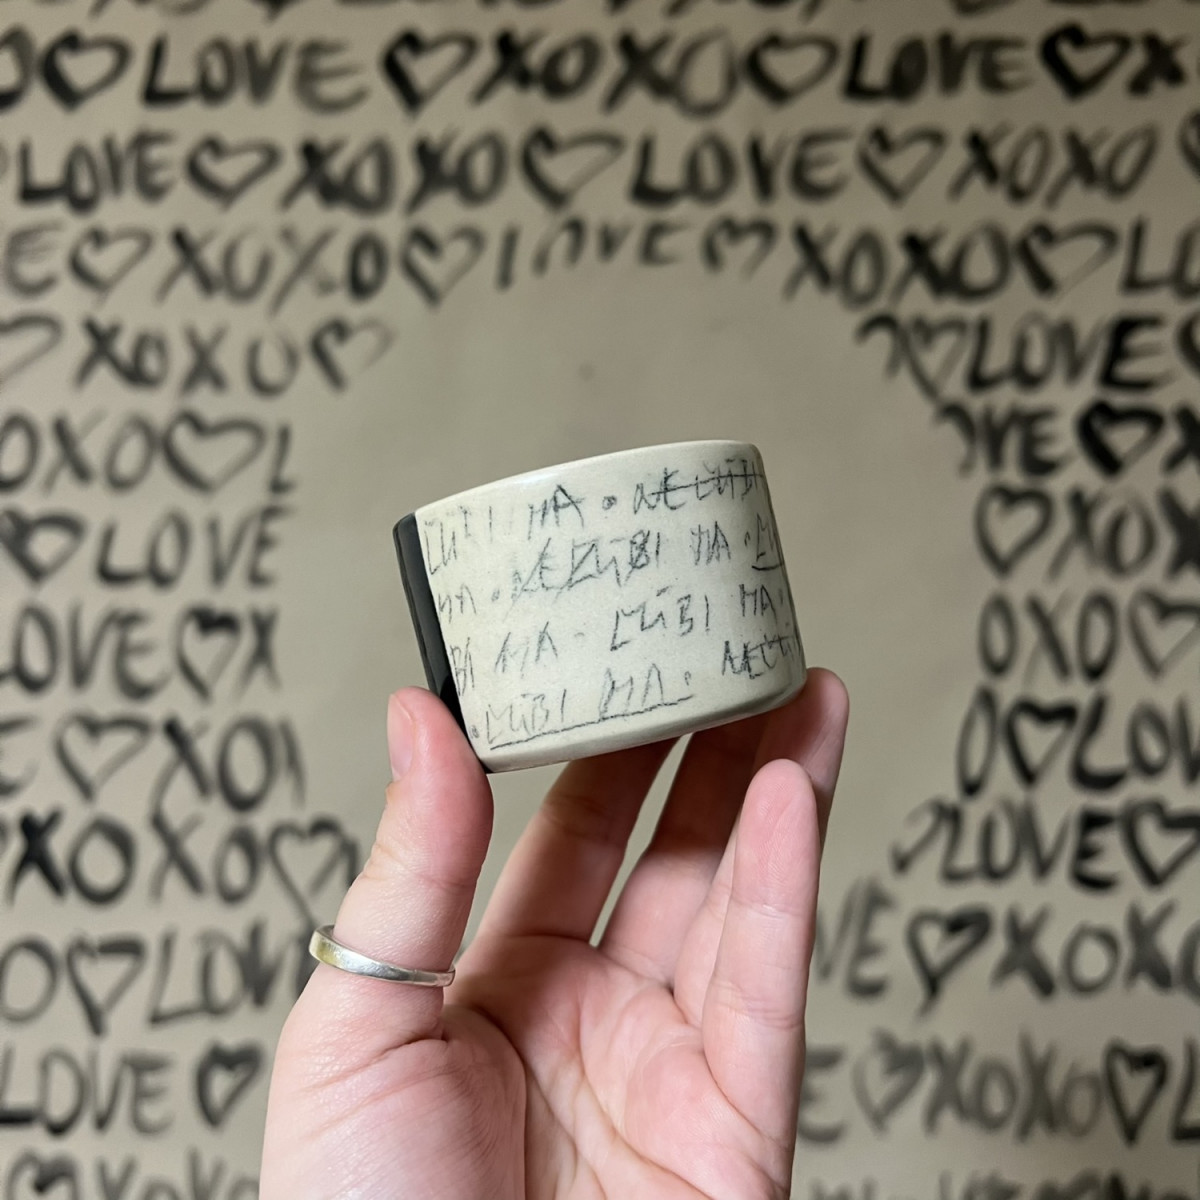 LOVE ♡ XOXO ♡ LOVE ♡ X
LOVE ♡ XOXO ♡ LOVE ♡ XOXO
E ♡ XOXO ♡ LOVE ♡ XOXO ♡ LO
♡ XOXO ♡ ♡ LOVE
OXO ♡ L OVE ♡ XOXO
♡ LOVE ♡ XO
LOVE ♡ X OXO ♡
E ♡ XOX O ♡ LOVE
XOXO ♡ LOVE ♡
O ♡ LOVE VE ♡ XOXO
LOVE ♡ E ♡ XOXO ♡
ĽÚBI MA • NEĽÚBI
MA • NEĽÚBI MA • Ľ
BI MA • ĽÚBI MA •
• ĽÚBI MA • NEĽÚ